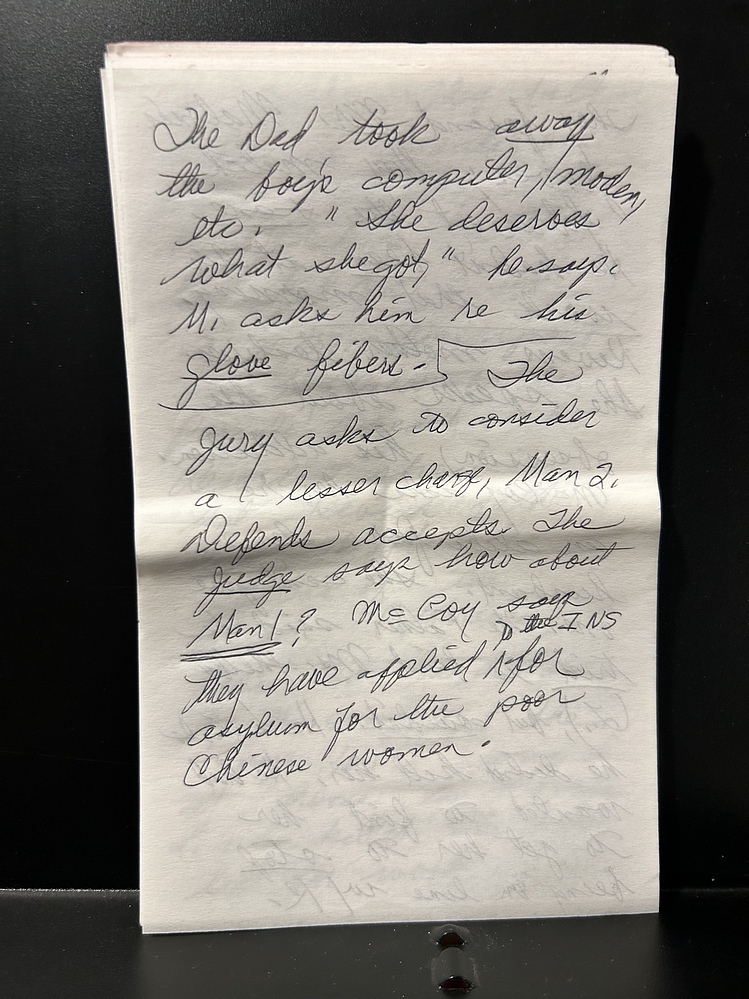 The Dad took away
the boy's computer, modem,
etc. "She deserves
what she got," he says.
M. asks him re his
glove fibers. The
jury asks to consider
a lesser charge, Man 2.
Defends accepts. The
judge says how about
Man 1? McCoy says
to the INS
they have applied for
asylum for the poor
Chinese women.